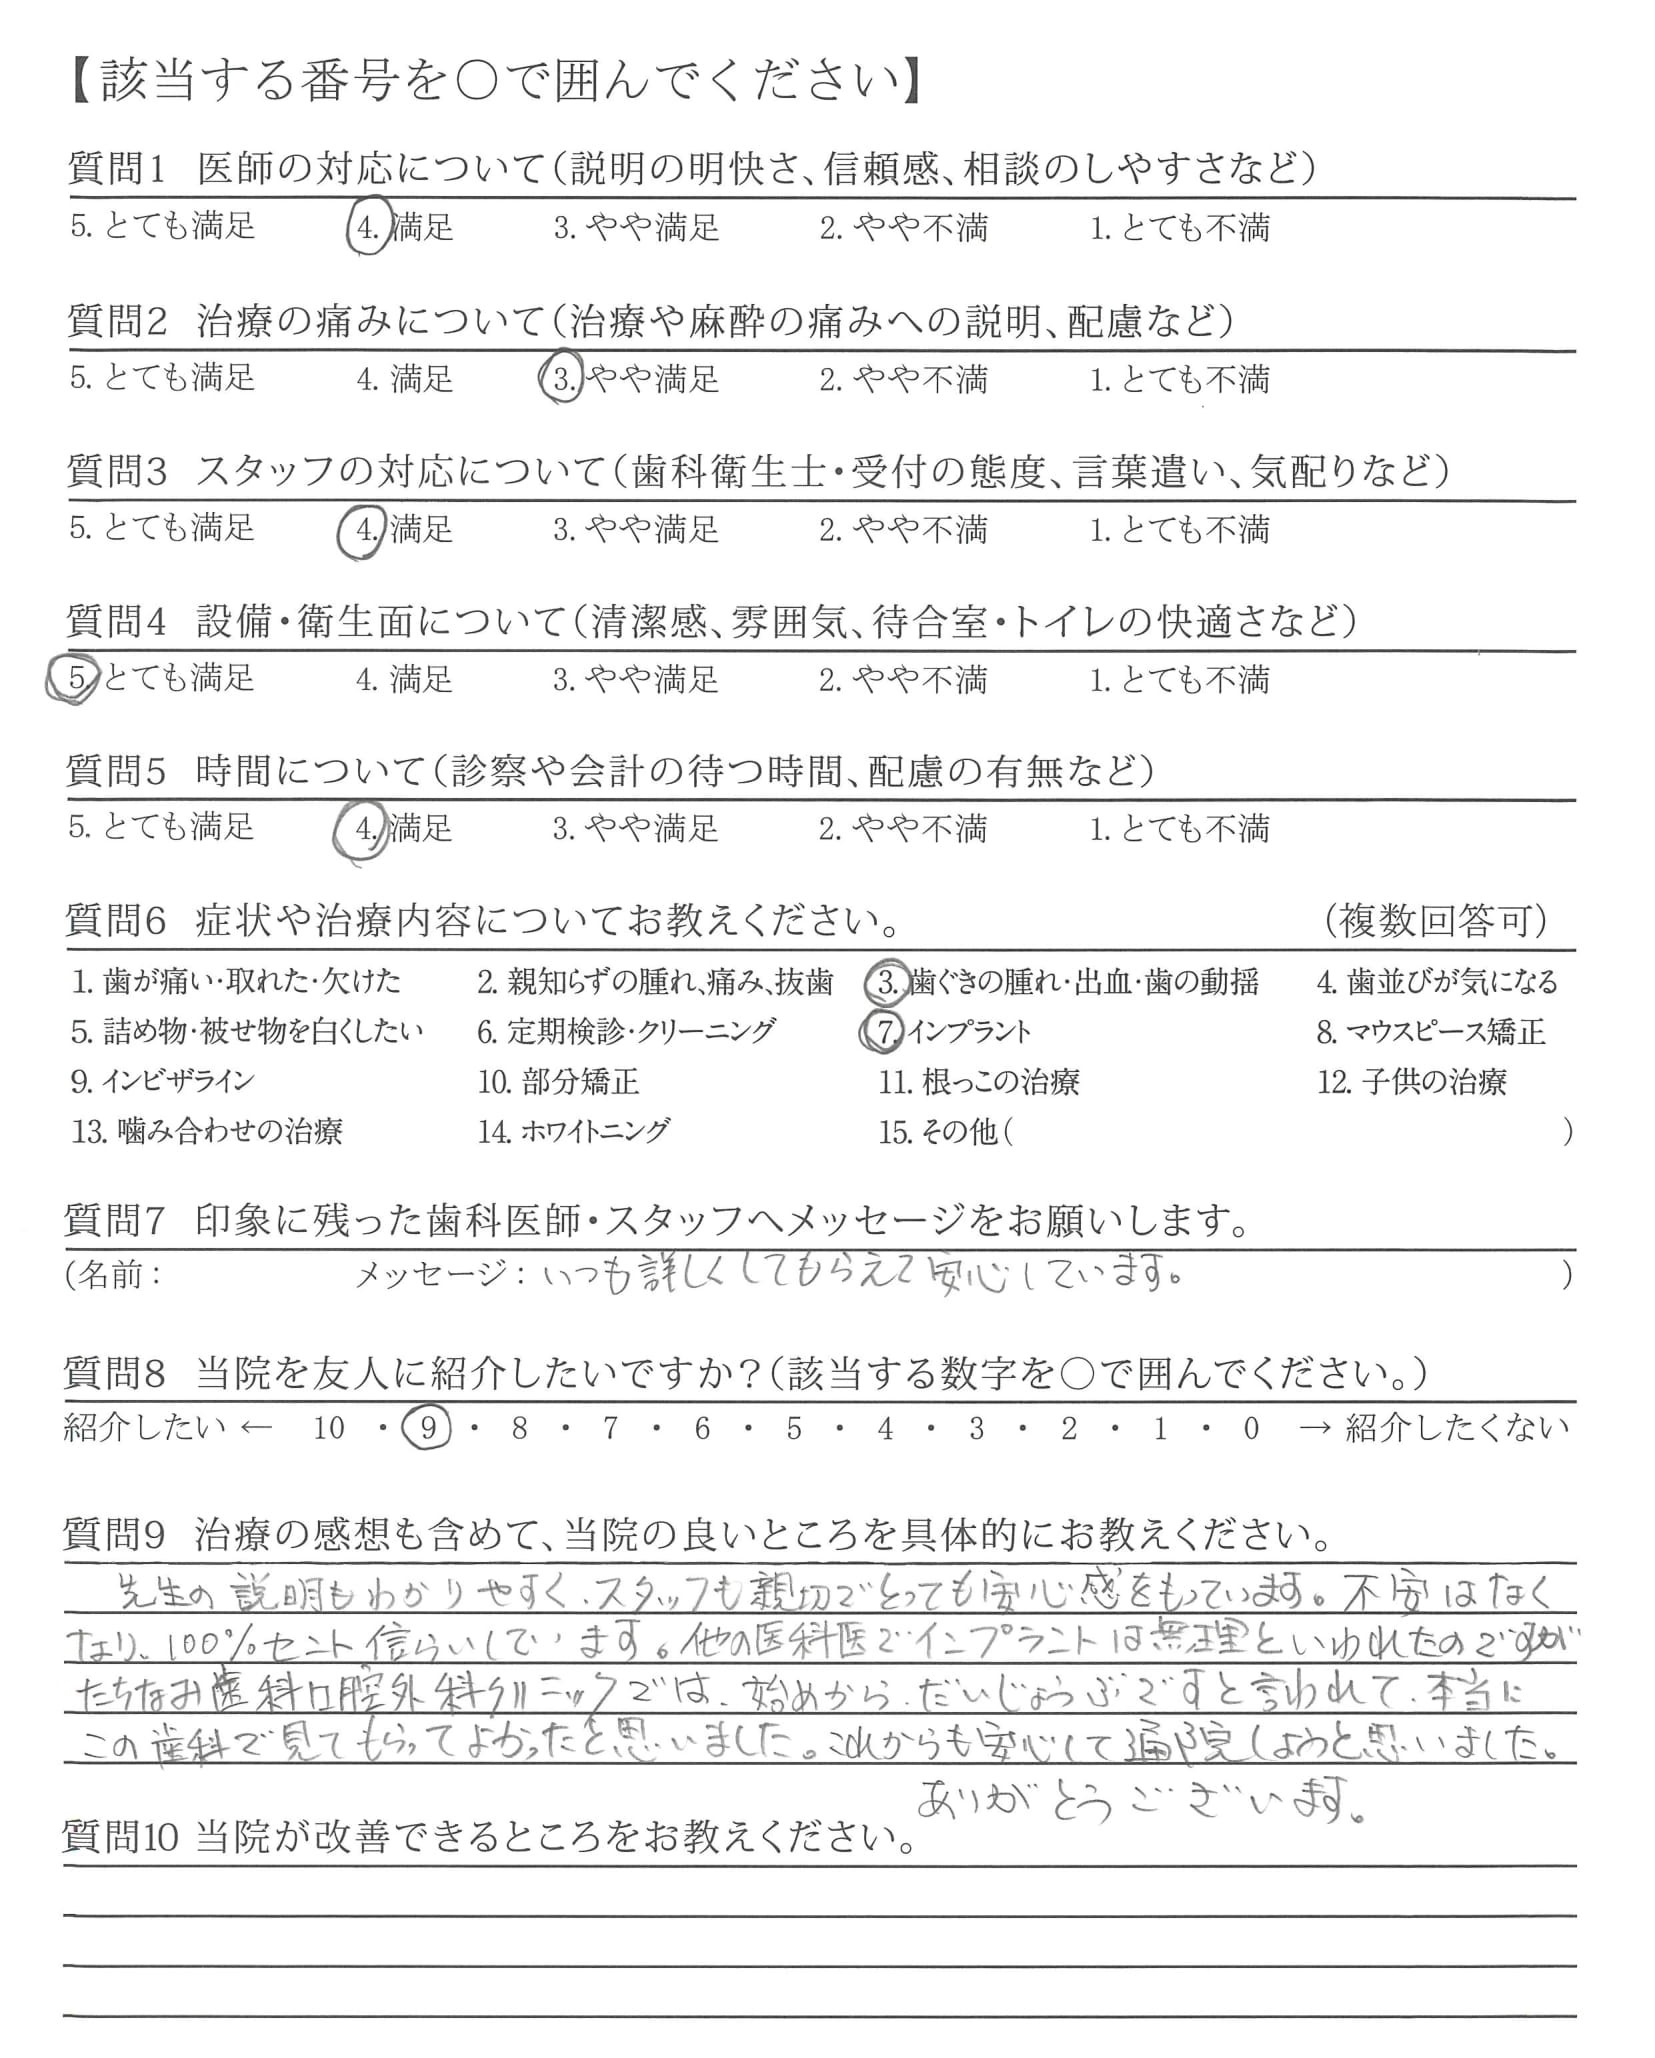 【該当する番号を○で囲んでください】
質問1 医師の対応について(説明の明快さ、信頼感、相談のしやすさなど)
5. とても満足 4. 満足 3. やや満足 2. やや不満 1. とても不満
質問2 治療の痛みについて(治療や麻酔の痛みへの説明、配慮など)
5. とても満足 4. 満足 3. やや満足 2. やや不満 1. とても不満
質問3 スタッフの対応について(歯科衛生士・受付の態度、言葉遣い、気配りなど)
5. とても満足 4. 満足 3. やや満足 2. やや不満 1. とても不満
質問4 設備・衛生面について(清潔感、雰囲気、待合室・トイレの快適さなど)
5. とても満足 4. 満足 3. やや満足 2. やや不満 1. とても不満
質問5 時間について(診察や会計の待つ時間、配慮の有無など)
5. とても満足 4. 満足 3. やや満足 2. やや不満 1. とても不満
質問6 症状や治療内容についてお教えください。 (複数回答可)
1. 歯が痛い・取れた・欠けた 2. 親知らずの腫れ、痛み、抜歯 3. 歯ぐきの腫れ・出血・歯の動揺 4. 歯並びが気になる
5. 詰め物・被せ物を白くしたい 6. 定期検診・クリーニング 7. インプラント 8. マウスピース矯正
9. インビザライン 10. 部分矯正 11. 根っこの治療 12. 子供の治療
13. 噛み合わせの治療 14. ホワイトニング 15. その他( )
質問7 印象に残った歯科医師・スタッフへメッセージをお願いします。
(名前: メッセージ: いつも詳しくしてもらえて安心しています。 )
質問8 当院を友人に紹介したいですか?(該当する数字を○で囲んでください。)
紹介したい ← 10 ・ 9 ・ 8 ・ 7 ・ 6 ・ 5 ・ 4 ・ 3 ・ 2 ・ 1 ・ 0 → 紹介したくない
質問9 治療の感想も含めて、当院の良いところを具体的にお教えください。
先生の説明もわかりやすく、スタッフも親切でとっても安心感をもっています。不安はなく
なり、100%セント信らいしています。他の医科医でインプラントは無理といわれたのですが
たちなお歯科口腔外科クリニックでは、始めから、だいじょうぶですと言われて、本当に
この歯科で見てもらってよかったと思いました。これからも安心して通院しようと思いました。
ありがとうございます。
質問10 当院が改善できるところをお教えください。